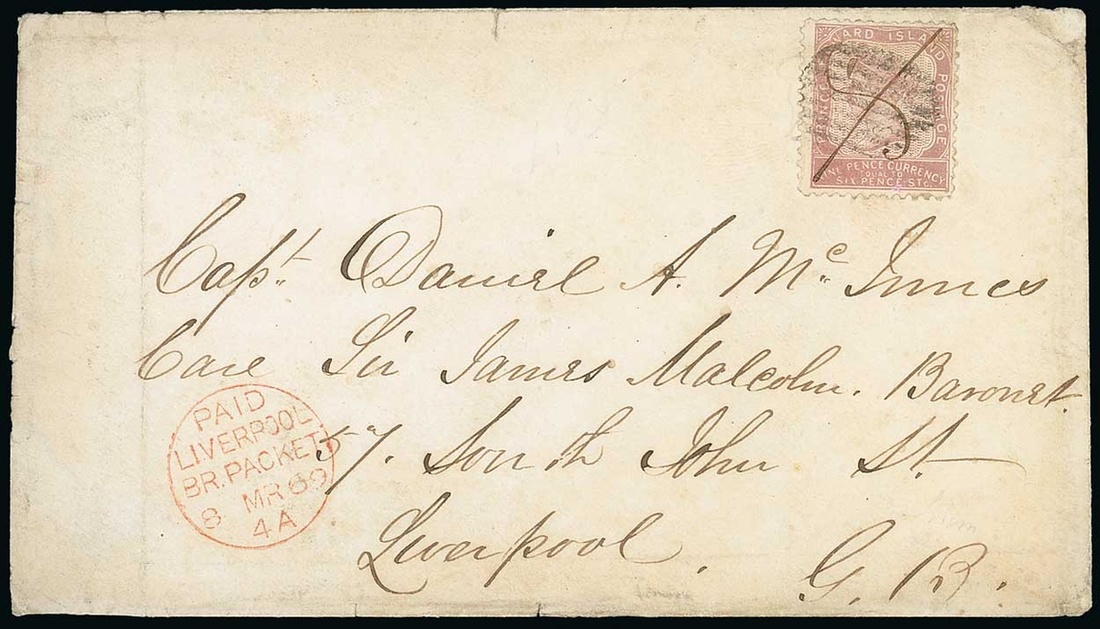 WARD ISLAND POSTAGE
PENCE CURRENCY
EQUAL TO
SIX PENCE STG.
Capt. Daniel A. Mc Innes
Care Sir James Malcolm. Baronet.
57. South John St
Liverpool.
G. B.
PAID
LIVERPOOL
BR. PACKET
8 MR 69
4 A